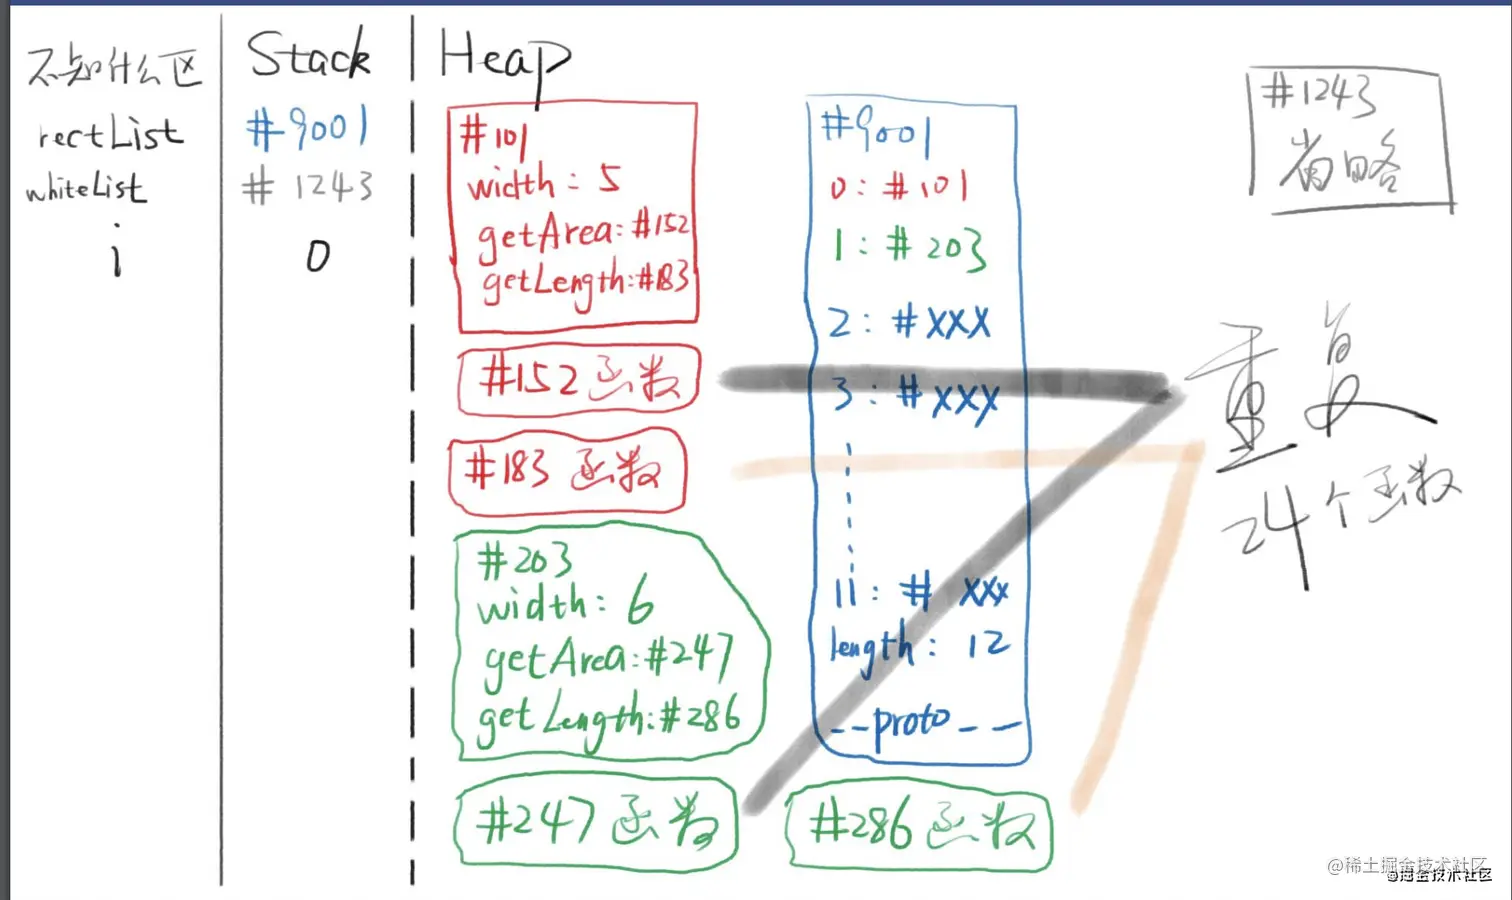 不知什么区
Stack
Heap
rectList
#9001
whiteList
#1243
i
0
#101
width: 5
getArea:#152
getLength:#183
#152 函数
#183 函数
#203
width: 6
getArea:#247
getLength:#286
#247 函数
#9001
0: #101
1: #203
2: #XXX
3: #XXX
11: # XXX
length: 12
--proto--
#286 函数
#1243
省略
重复
24个函数
@稀土掘金技术社区
@掘金技术社区